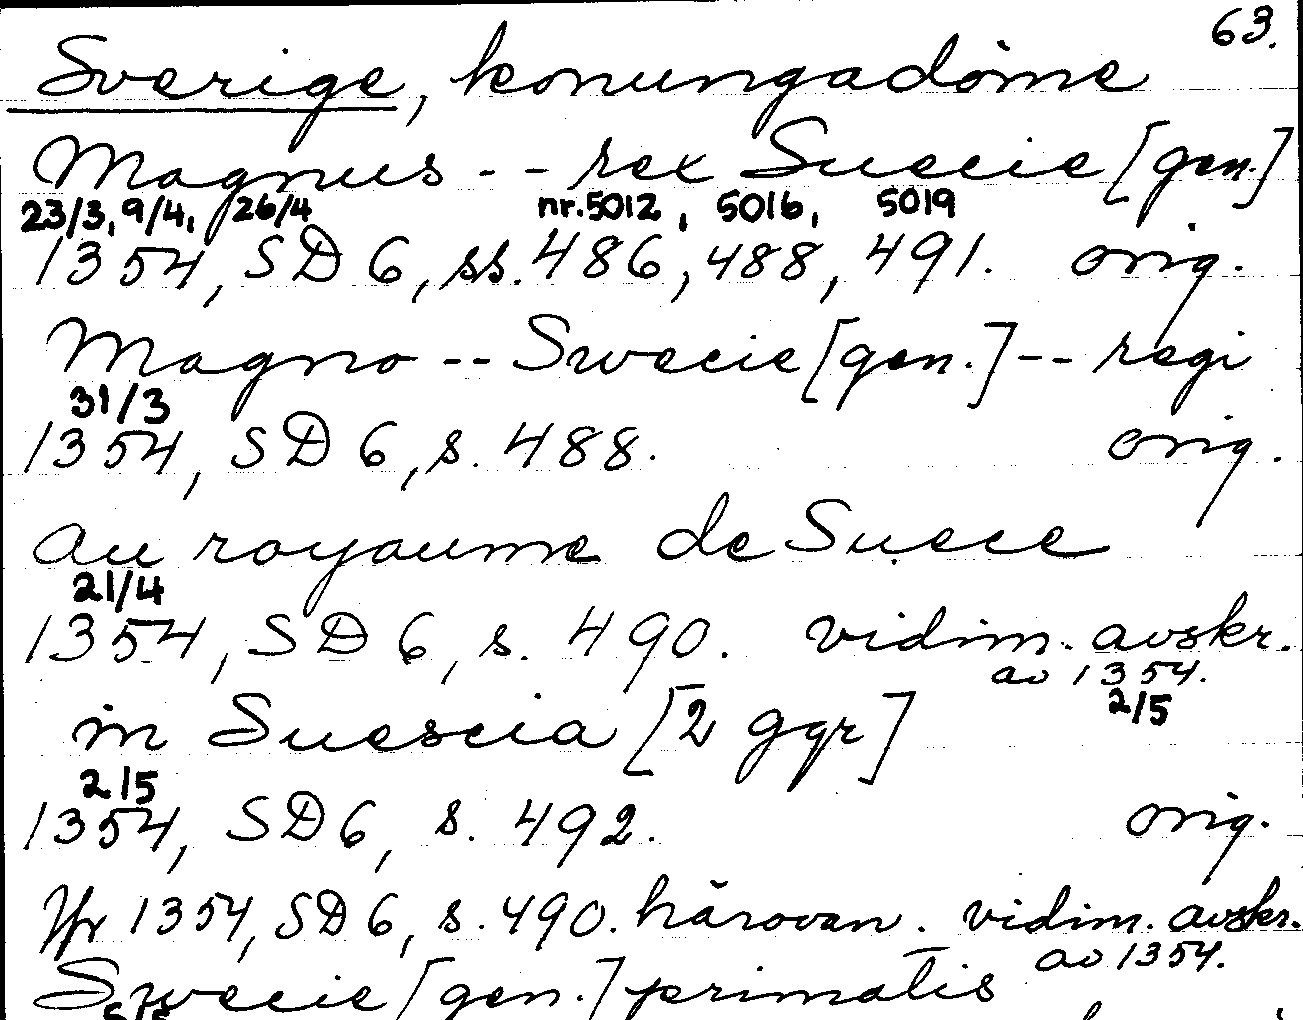 63.
Sverige, konungadöme
Magnus -- rex Suecie [gen.]
23/3, 9/4, 26/4 nr. 5012, 5016, 5019
1354, SD 6, ss. 486, 488, 491. orig.
Magno -- Swecie [gen.] -- regi
31/3
1354, SD 6, s. 488. orig.
au royaume de Suece
21/4
1354, SD 6, s. 490. vidim. avskr.
av 1354.
2/5
in Suescia [2 ggr]
2/5
1354, SD 6, s. 492. orig.
Jfr 1354, SD 6, s. 490. härovan. vidim. avskr.
av 1354.
Swecie [gen.] primatis